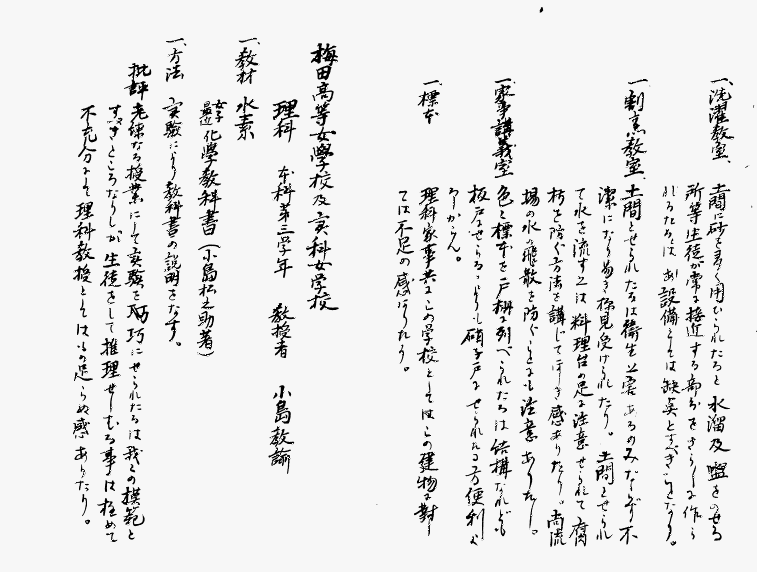 一、洗濯教室、土間に砂を多く用ひられたると水溜及盥をのせる
所等生徒が常に接近する部分をきうしよ作ら
れたるは設備としては缺点とすべきところなり。
一、割烹教室、土間とせられたるは衛生上害あるのみならず不
潔になり易き様見受けられたり。土間とせられ
て水を流す上は料理台の足に注意せられて腐
朽を防ぐ方法を講じてほしき感ありたり。尚流
場の水の飛散を防ぐことにも注意ありたし。
一、家事講義室 色々標本を戸棚に列べられたるは結構なれども
板戸にせらるゝよりも硝子戸にせられたる方便利な
らんか。
一、標本 理科家事共にこの学校としてはこの建物に対し
ては不足の感ありたり。
梅田高等女學校及実科女学校
理科 本科第三学年 教授者 小島教諭
一、教材 水素
女子最近化學教科書(小島松之助著)
一、方法 実験により教科書の説明をなす。
批評 老練なる授業にして実験を巧にせられたるは我々の模範と
すべきところなりしが生徒をして推理せしむる事は極めて
不充分にして理科教授としてはもの足らぬ感ありたり。